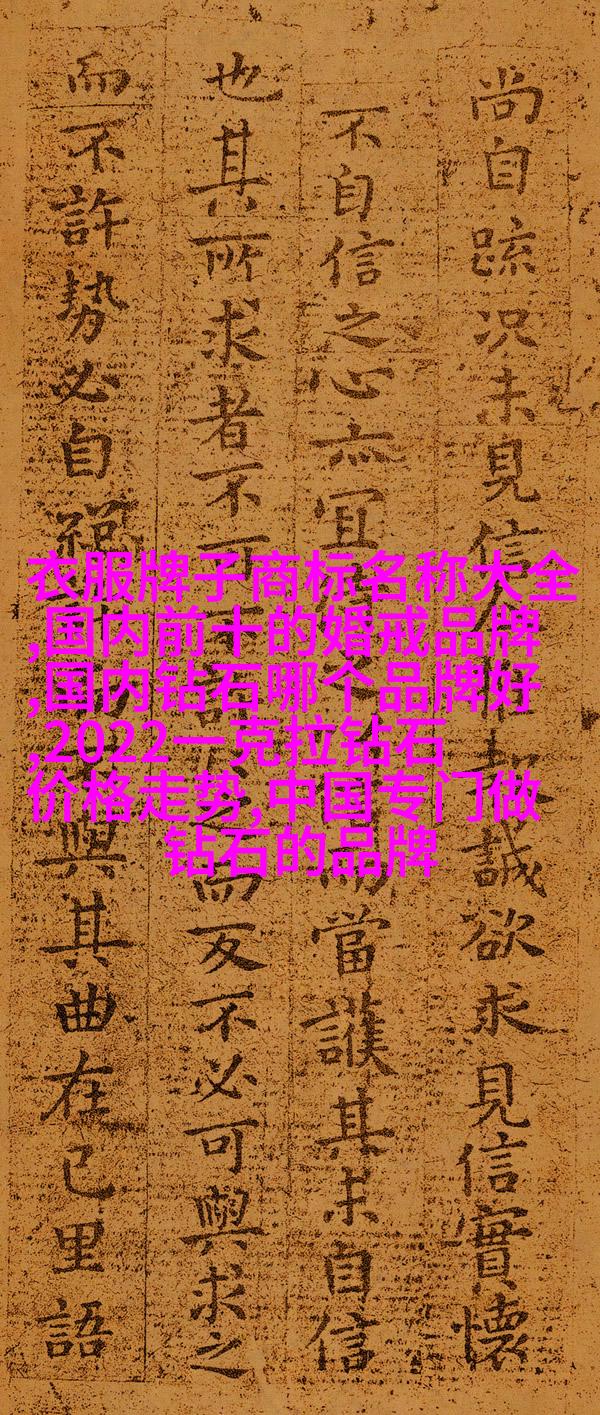 尚自疏况未見信誠欲求見信實懷
不自信之心亦宜而當護其未自信
也其所求者不可而反不必可與求之
而不許勢必自絕與其曲在己里語
衣服牌子商标名称大全
,国内前十的婚戒品牌
,国内钻石哪个品牌好
,2022一克拉钻石
价格走势,中国专门做
钻石的品牌